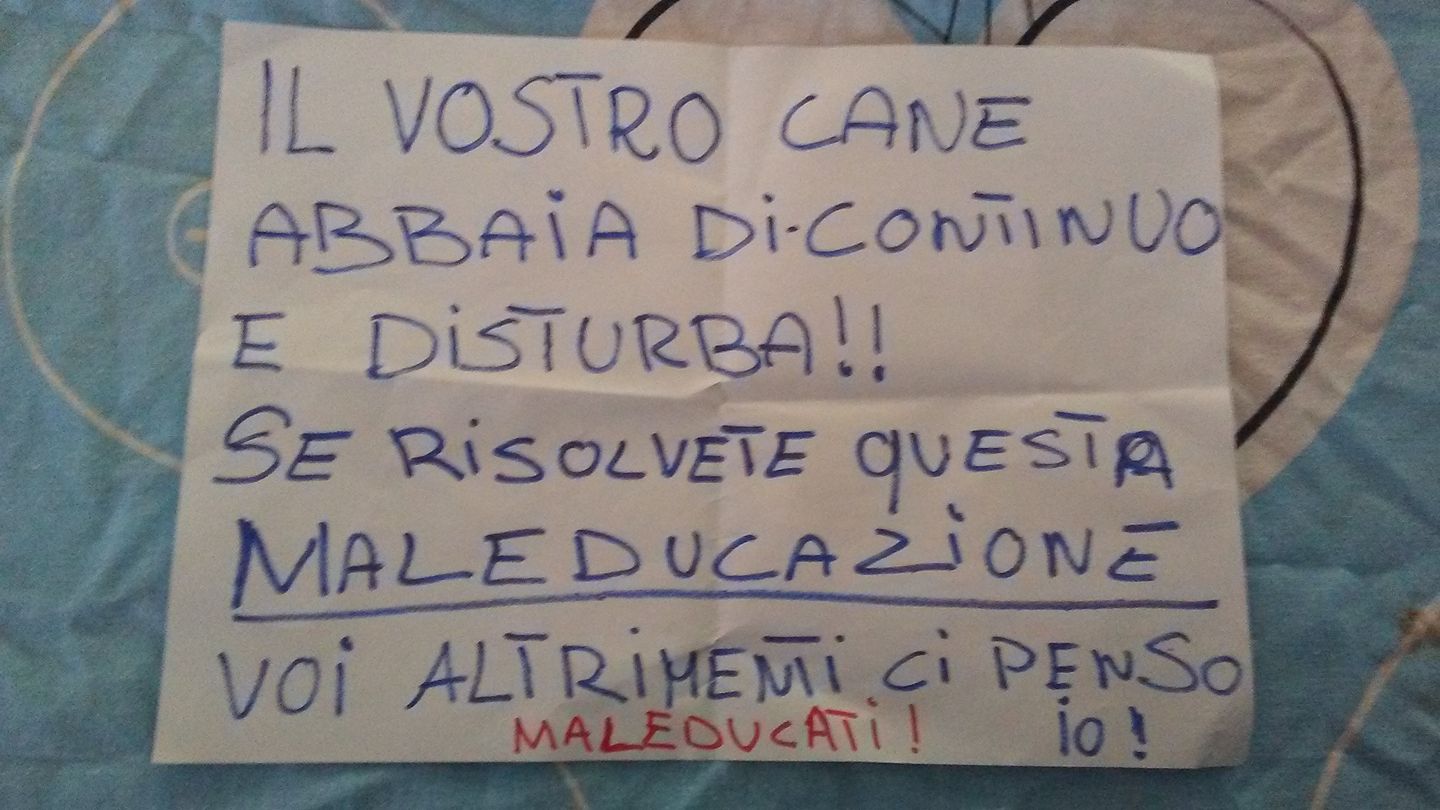 IL VOSTRO CANE
ABBAiA Di-CONTINUO
E DiSTURBA!!
SE RiSOLVETE QUESTA
MALEDUCAZiONE
VOi ALTRiMENTi Ci PENSO
iO!
MALEDUCATi!